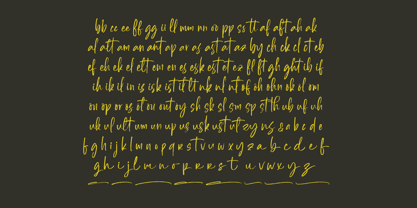 bb cc ee ff gg ii ll mm nn oo pp ss tt af aft ah ak
al all am an ant ap ar as ast at az by ch ck cl ct eb
ef eh ek el ell em en es esk est et ez fl ft gh ght ib if
ih ik il in is isk ist it lt nk nl nt of oh ohn ok ol om
on op or os ot ou out oy sh sk sl sm sp st th ub uf uh
uk ul ult um un up us usk ust ut zy ng s a b c d e
f g h i j k l m n o p q r s t u v w x y z a b c d e f
g h i j l m n o p r r s t u v w x y z